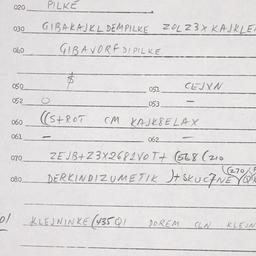 020 PILKE
030 GIBAKAJKL DEMPILKE ZOLZ3X KAJKLE
040 GIBAVORF DIPILKE
$
050 051 CEJVN
052 O 053 –
060 ((S+80T CM KAJK8ELAX
061 – 062 –
070 ZEJB+Z3X2681VOT+ (568 (210
(270/
080 DERKINDIZUMETIK )+SKUC7NE
KLEJNINKE (435Q1 DOREM CLN KLEJN